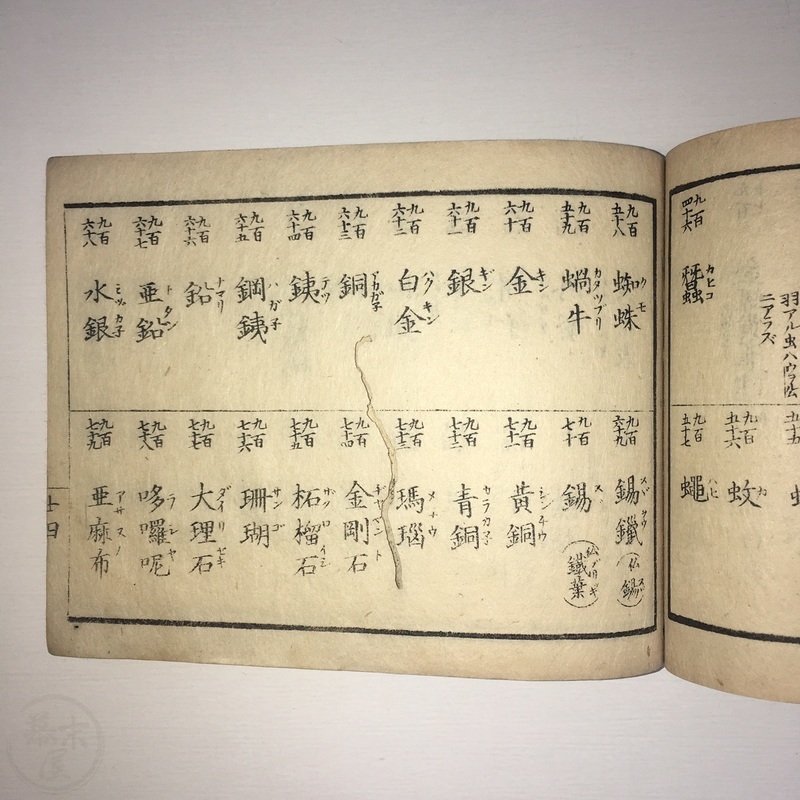 九百四十六 蠶 カヒコ
羽アル虫ハ
ニアラズ
九百五十六 蚊 カ
九百五十七 蠅 ハヒ
九百五十八 蜘蛛 クモ
九百五十九 蝸牛 カタツブリ
九百六十 金 キン
九百六十一 銀 ギン
九百六十二 白金 ハクキン
九百六十三 銅 アカガ子
九百六十四 銕 テツ
九百六十五 鋼銕 ハガ子
九百六十六 鉛 ナマリ
九百六十七 亜鉛 トタン
九百六十八 水銀 ミツカ子
九百六十九 錫鑞 (仏錫 スヾ)
九百七十 錫 スヾ (鐵葉)
九百七十一 黄銅 シンチウ
九百七十二 青銅 カラカ子
九百七十三 瑪瑙 メナウ
九百七十四 金剛石 ギヤマント
九百七十五 柘榴石 ザクロイシ
九百七十六 珊瑚 サンゴ
九百七十七 大理石 ダイリセキ
九百七十八 哆囉呢 ラシヤ
九百七十九 亜麻布 アサヌノ
十四